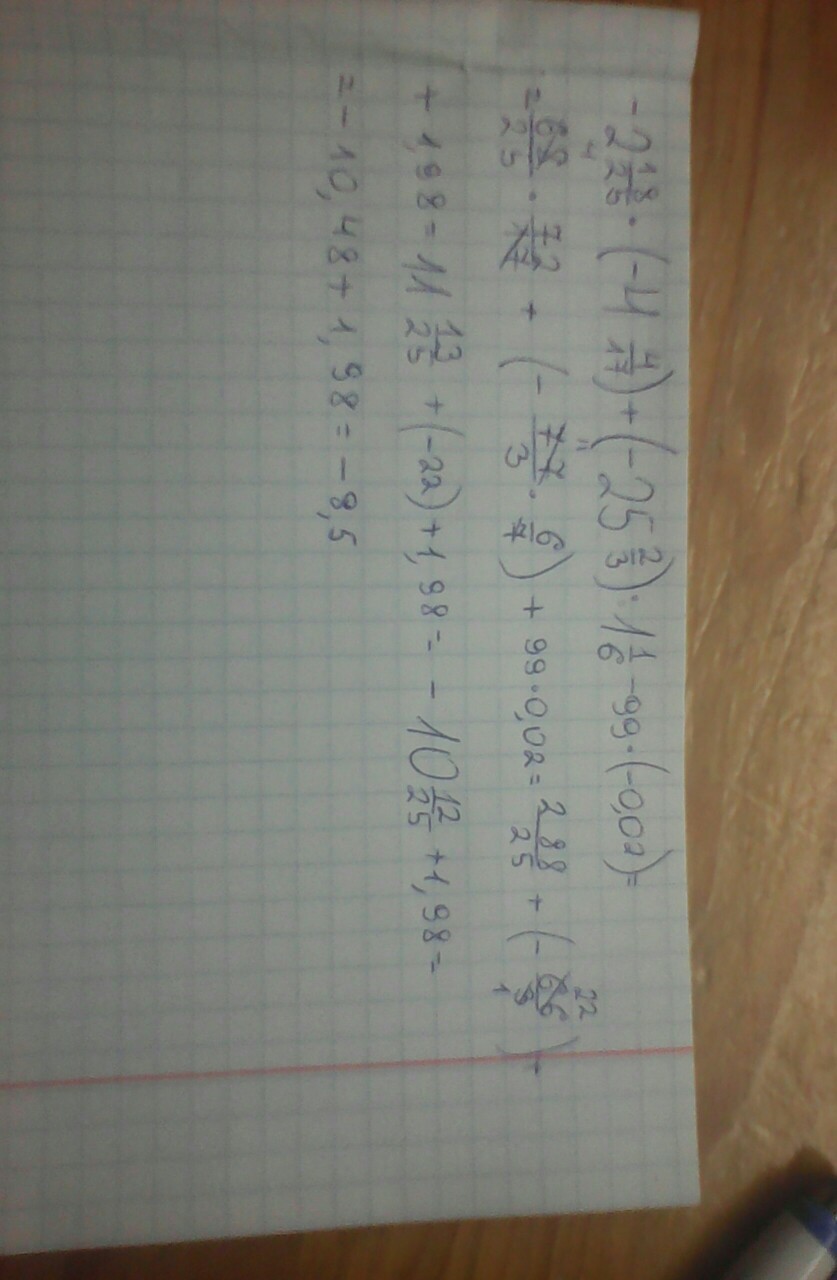 -2 18/25 · (-4 4/17) + (-25 2/3) : 1 1/6 - 99 · (-0,02) =
= 68/25 · 72/17 + (- 77/3 · 6/7) + 99 · 0,02 = 288/25 + (- 66/3) +
+ 1,98 = 11 13/25 + (-22) + 1,98 = - 10 12/25 + 1,98 =
= - 10,48 + 1,98 = - 8,5